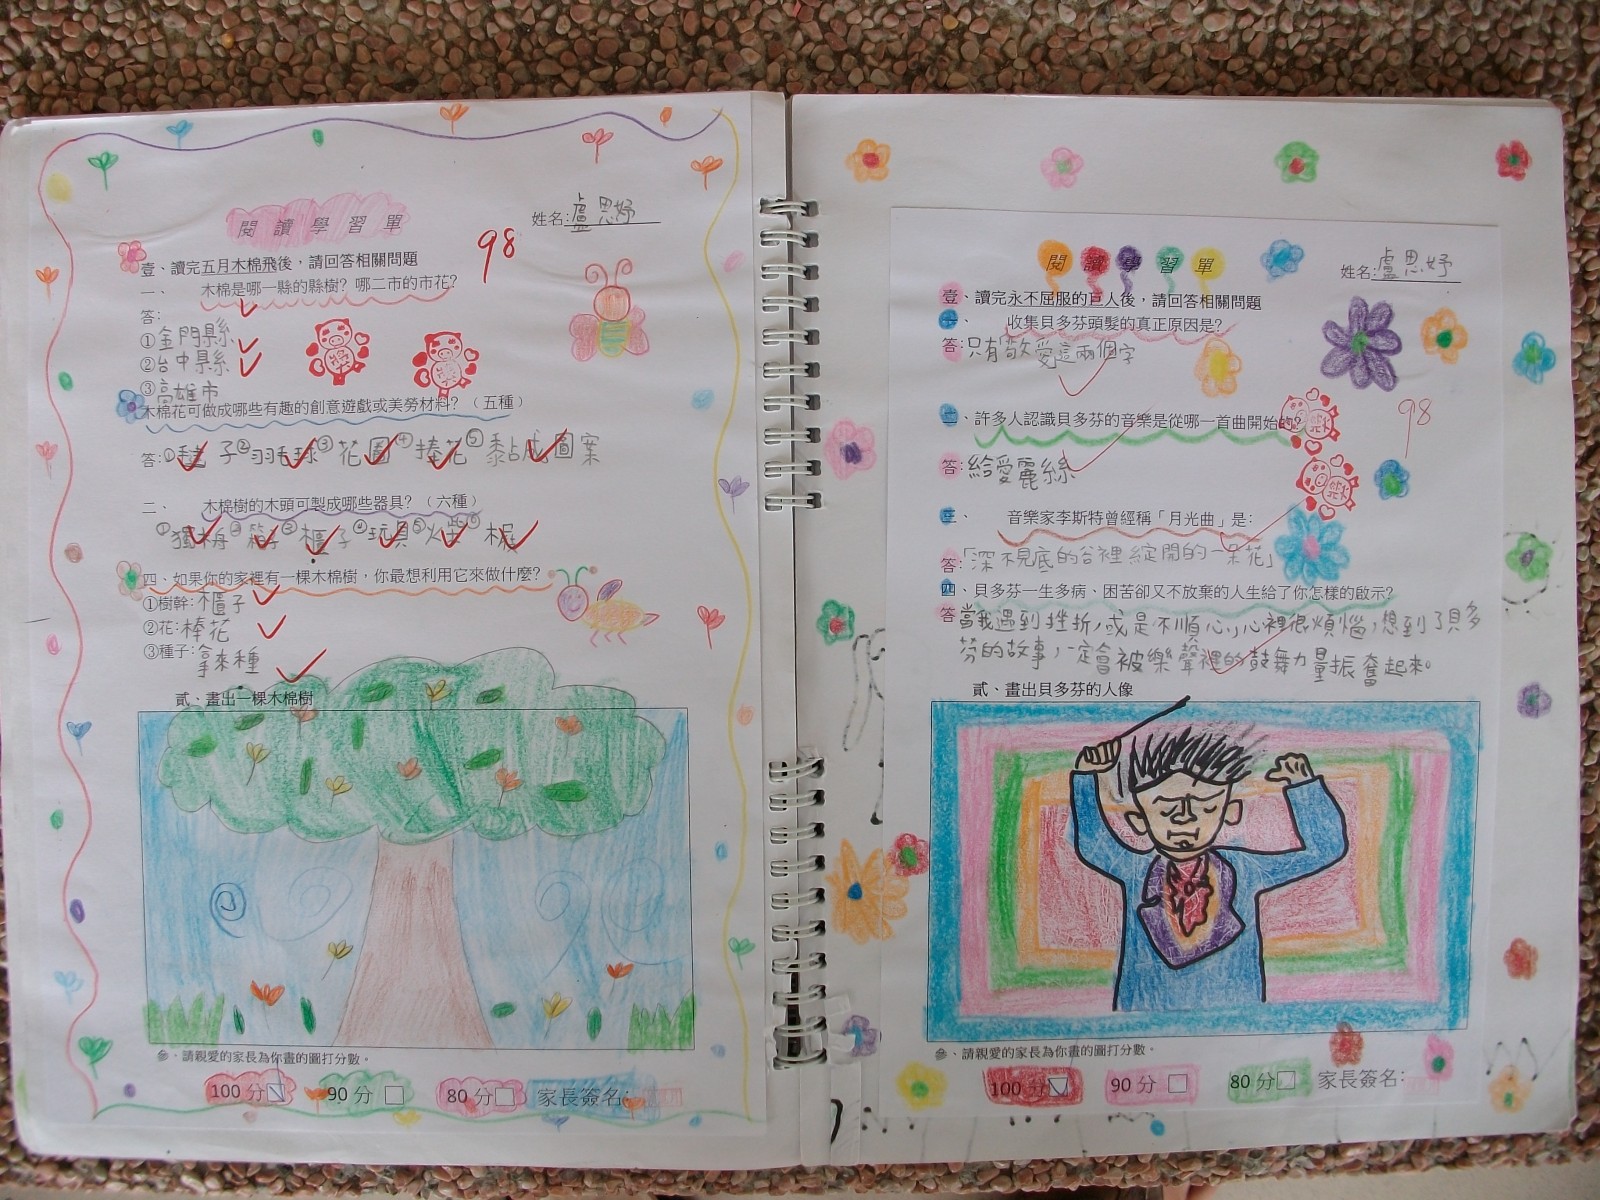 閱讀學習單
姓名:盧思妤
98
壹、讀完五月木棉飛後，請回答相關問題
一、 木棉是哪一縣的縣樹？哪二市的市花？
答:
①金門縣
②台中縣
③高雄市
木棉花可做成哪些有趣的創意遊戲或美勞材料？（五種）
答:①毽子②羽毛球③花圈④捧花⑤黏成圖案
二、 木棉樹的木頭可製成哪些器具？（六種）
①獨木舟②箱子③櫃子④玩具⑤火柴⑥木屐
四、如果你的家裡有一棵木棉樹，你最想利用它來做什麼？
①樹幹:櫃子
②花:捧花
③種子:拿來種
貳、畫出一棵木棉樹
參、請親愛的家長為你畫的圖打分數。
100分 90分 80分 家長簽名:
閱讀學習單
姓名:盧思妤
壹、讀完永不屈服的巨人後，請回答相關問題
一、 收集貝多芬頭髮的真正原因是?
答:只有敬愛這兩個字
二、許多人認識貝多芬的音樂是從哪一首曲開始的?
98
答:給愛麗絲
三、 音樂家李斯特曾經稱「月光曲」是:
答:「深不見底的谷裡綻開的一朵花」
四、貝多芬一生多病、困苦卻又不放棄的人生給了你怎樣的啟示?
答當我遇到挫折,或是不順心,心裡很煩惱,想到了貝多
芬的故事,一定會被樂聲裡的鼓舞力量振奮起來。
貳、畫出貝多芬的人像
參、請親愛的家長為你畫的圖打分數。
100分 90分 80分 家長簽名: